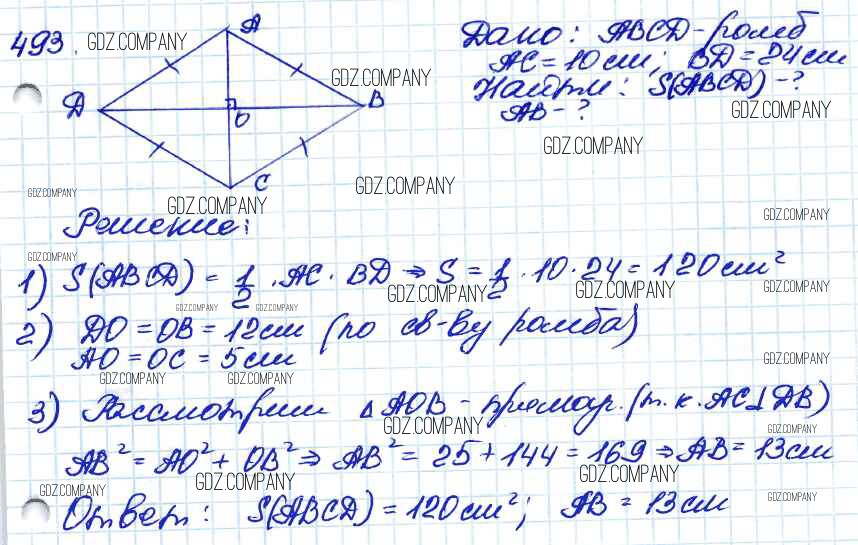 493. GDZ.COMPANY
A
D
B
O
C
Дано: ABCD - ромб
AC = 10 см; BD = 24 см
Найти: S(ABCD) - ?
AB - ?
GDZ.COMPANY
GDZ.COMPANY
GDZ.COMPANY
GDZ.COMPANY
GDZ.COMPANY
GDZ.COMPANY
GDZ.COMPANY
Решение:
GDZ.COMPANY
GDZ.COMPANY
1) S(ABCD) = 1/2 · AC · BD ⇒ S = 1/2 · 10 · 24 = 120 см²
GDZ.COMPANY GDZ.COMPANY GDZ.COMPANY
GDZ.COMPANY GDZ.COMPANY
2) DO = OB = 12 см (по св-ву ромба)
AO = OC = 5 см
GDZ.COMPANY
GDZ.COMPANY GDZ.COMPANY
3) Рассмотрим △AOB - прямоуг. (т.к. AC⊥DB)
GDZ.COMPANY GDZ.COMPANY
AB² = AO² + OB² ⇒ AB² = 25 + 144 = 169 ⇒ AB = 13 см
GDZ.COMPANY GDZ.COMPANY GDZ.COMPANY GDZ.COMPANY
Ответ: S(ABCD) = 120 см²; AB = 13 см